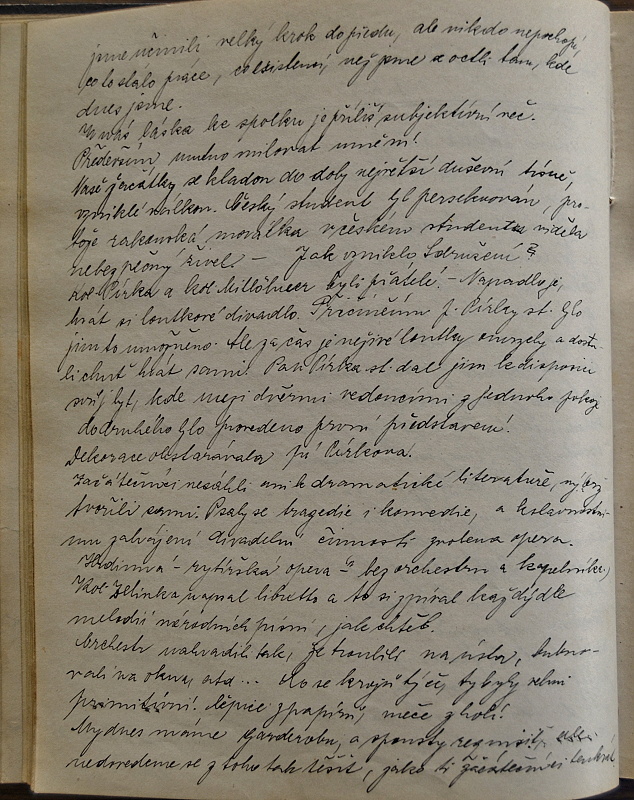 jsme učinili velký krok dopředu, ale nikdo nepochopí,
co to stálo práce, co existencí, než jsme se octli tam, kde
dnes jsme.
U nás láska ke spolku je příliš subjektivní věc.
Především nutno milovat umění!
Naše začátky se kladou do doby největší duševní tísně,
vzniklé válkou. Český student byl persekvován, pro-
tože rakouská novalka v českém studentu viděla
nebezpečný živel. – Jak vzniklo Sdružení?
Kol. Cirka a kol. Mitlöhner byli přátelé. – Napadlo je,
hrát si loutkové divadlo. Přičiněním p. Cirky st. bylo
jim to umožněno. Ale za čas je neživé loutky omrzely a dosta-
li chuť hrát sami. Pan Cirka st. dal jim k disposici
svůj byt, kde mezi dvěrmi vedoucími z jednoho pokoje
do druhého bylo provedeno první představení.
Dekorace obstarávala pí Cirkova.
Začátečníci nesáhli ani k dramatické literatuře, nýbrž
tvořili sami. Psaly se tragedie i komedie, a k slavnostní-
mu zahájení divadelní činnosti zvolena opera.
– rytířská opera bez orchestru a kapelníka.)
Kol. Jelinka napsal libretto a to si zpíval každý dle
melodií národních písní, jak chtěl.
Orchestr nahradili tak, že troubili na ústa, bubno-
vali na okna, atd... Co se krojů týče, ty byly velmi
primitivní. Čepice z papíru, meče z holí!
My dnes máme garderobu, a spousty requisit,
nedovedeme se z toho tak těšit, jako ti začátečníci tenkrát